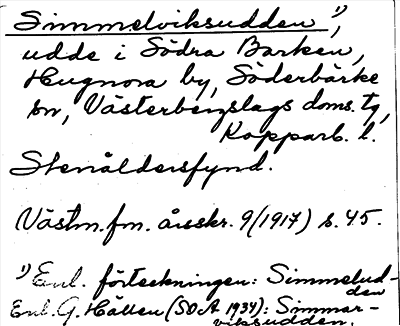 Simmelviksudden 1),
udde i Södra Barken,
Hugnora by, Söderbärke
sn, Västerbergslags doms. tg,
Kopparb. l.
Stenåldersfynd.
Västm. fm. årsskr. 9 (1917) s. 45.
1) Enl. förteckningen: Simmelud-
den
Enl. G. Hallen (SOA 1934): Simmar-
viksudden.